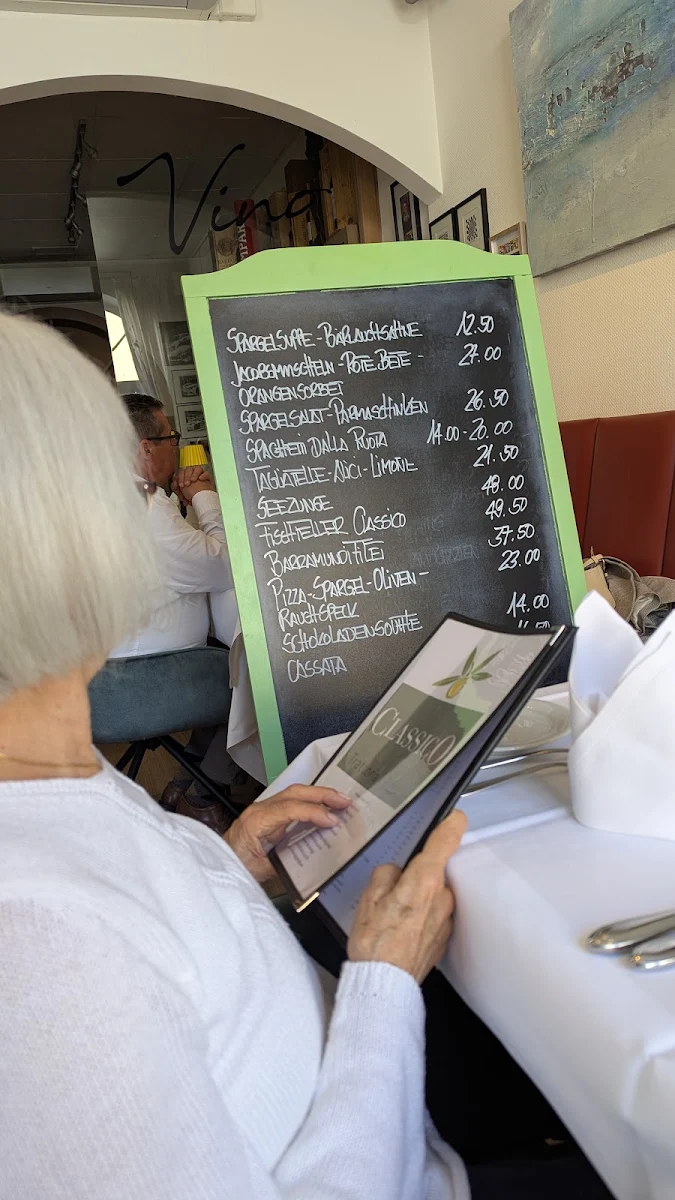 Vino
SPARGELSUPPE - BÄRLAUCHSAHNE 12.50
JACOBSMUSCHELN - ROTE BETE - 27.00
ORANGENSORBET
SPARGELSALAT - PARMASCHINKEN 26.50
SPAGHETTI DALLA RUOTA 14.00 - 20.00
TAGLIATELLE - NOCI - LIMONE 21.50
SEEZUNGE 48.00
FISCHTELLER CLASSICO 49.50
BARRAMUNDIFILET 37.50
PIZZA - SPARGEL - OLIVEN - 23.00
RAUCHSPECK
SCHOKOLADENSOUFFLE 14.00
CASSATA
CLASSICO